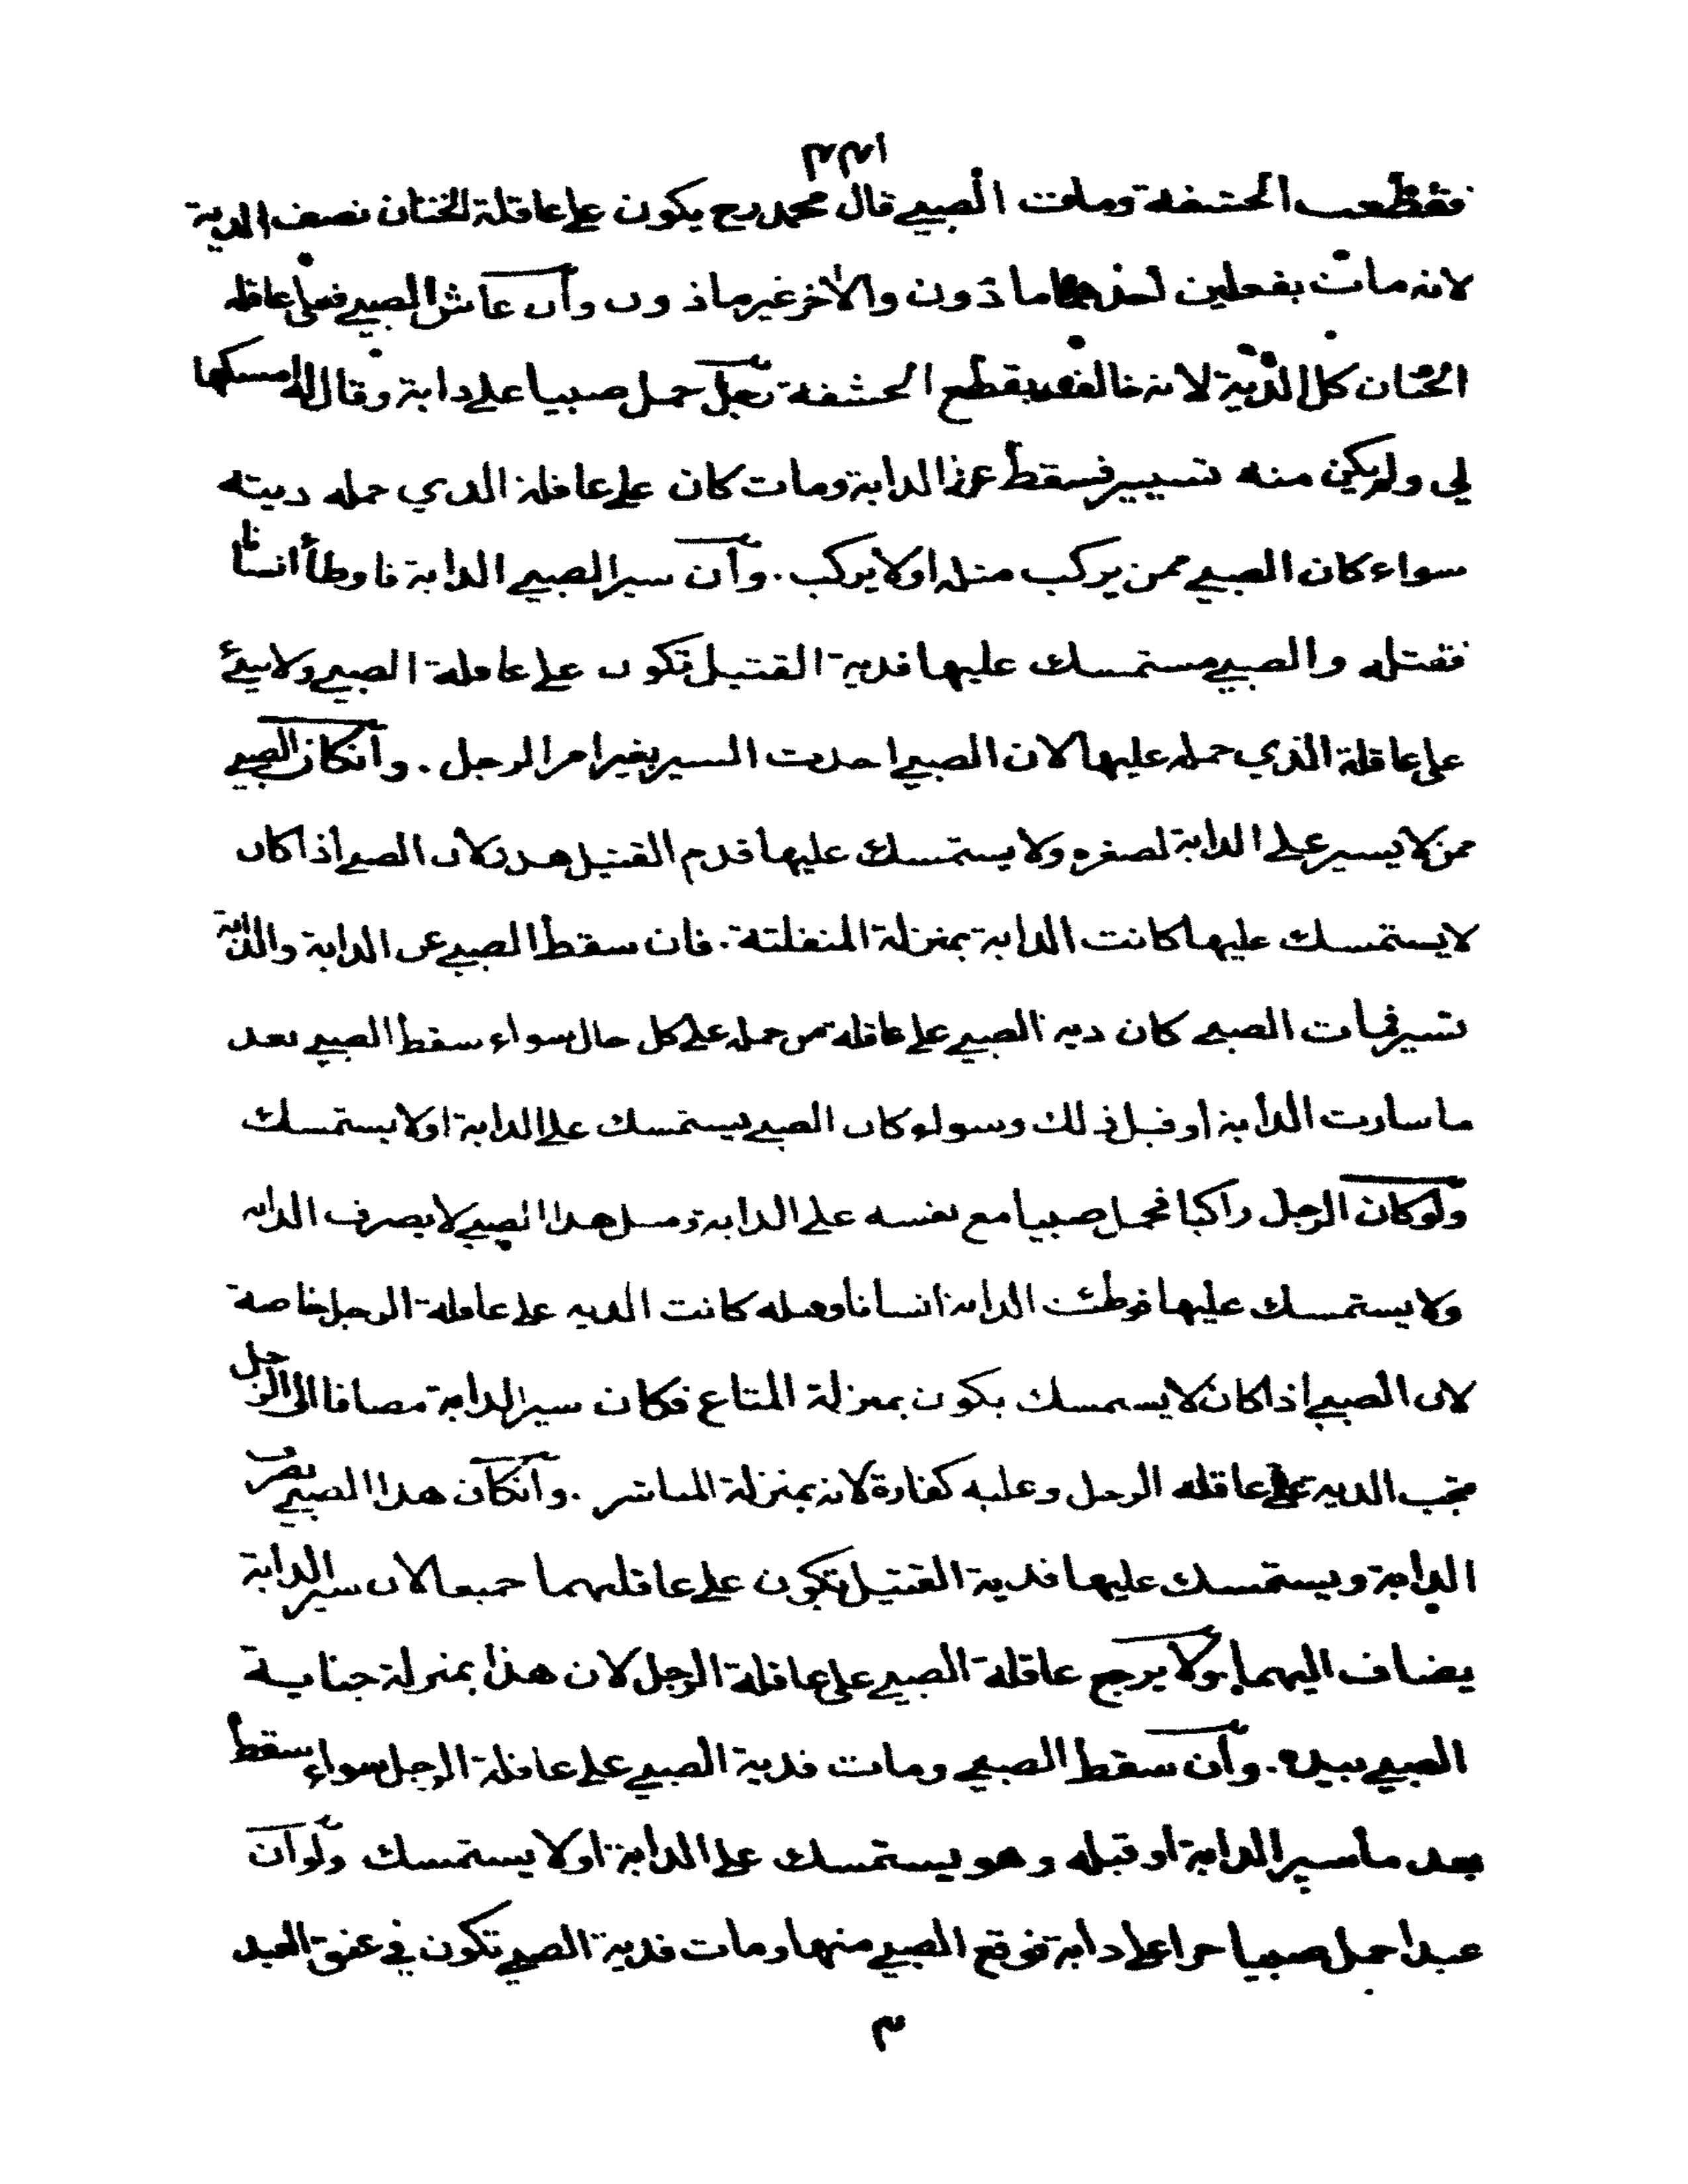 فقطعت الحشفة ومات الصبي قال محمد رح يكون على عاقلة الختان نصف الدية
لانه مات بفعلين احدهما ماذون والاخر غير ماذون وان عاش الصبي فعلى عاقلة
الختان كل الدية لانه خالف بقطع الحشفة رجل حمل صبيا على دابة وقال له امسكها
لي ولم يكن منه تسيير فسقط عن الدابة ومات كان على عاقلة الذي حمله ديته
سواء كان الصبي ممن يركب مثله او لا يركب. وان سير الصبي الدابة فاوطأ انسانا
فقتله والصبي مستمسك عليها فدية القتيل تكون على عاقلة الصبي ولا شيء
على عاقلة الذي حمله عليها لان الصبي احدث السير بغير امر الرجل. وان كان الصبي
ممن لا يسير على الدابة لصغره ولا يستمسك عليها فدم القتيل هدر لان الصبي اذا كان
لا يستمسك عليها كانت الدابة بمنزلة المنفلتة. فان سقط الصبي عن الدابة والدابة
تسير فمات الصبي كان دية الصبي على عاقلة من حمله على كل حال سواء سقط الصبي بعد
ما سارت الدابة او قبل ذلك وسواء كان الصبي يستمسك على الدابة او لا يستمسك
ولو كان الرجل راكبا فحمل صبيا مع نفسه على الدابة ومثل هذا الصبي لا يصرف الدابة
ولا يستمسك عليها فوطئت الدابة انسانا وقتله كانت الدية على عاقلة الرجل خاصة
لان الصبي اذا كان لا يستمسك يكون بمنزلة المتاع فكان سير الدابة مضافا الى الرجل
فتجب الدية على عاقلة الرجل وعليه كفارة لانه بمنزلة المباشر. وان كان هذا الصبي يصرف
الدابة ويستمسك عليها فدية القتيل تكون على عاقلتهما جميعا لان سير الدابة
يضاف اليهما ولا يرجع عاقلة الصبي على عاقلة الرجل لان هذا بمنزلة جناية
الصبي بيده. وان سقط الصبي ومات فدية الصبي على عاقلة الرجل سواء سقط
بعد ما سير الدابة او قبله وهو يستمسك على الدابة او لا يستمسك ولو ان
عبدا حمل صبيا حرا على دابة فوقع الصبي منها ومات فدية الصبي تكون في عنق العبد
٣